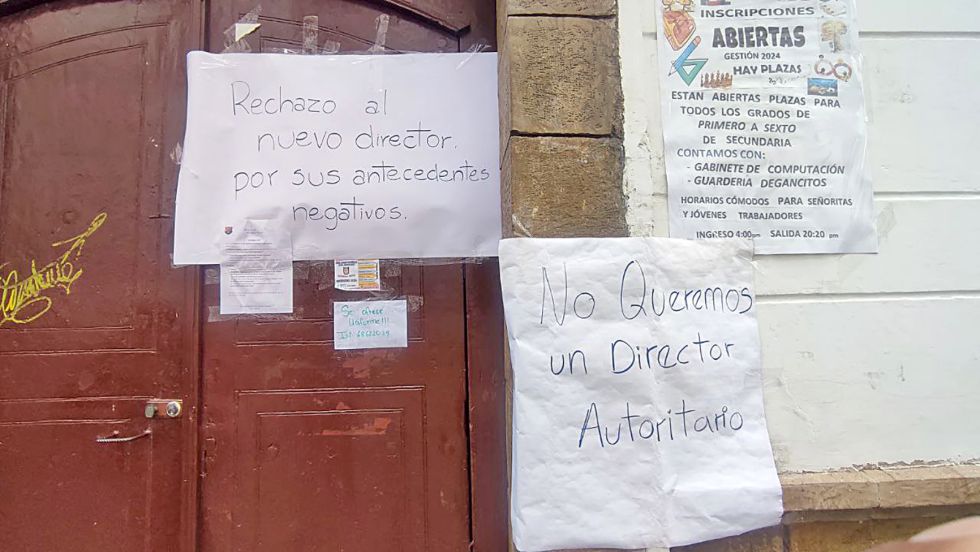 Rechazo al
nuevo director.
por sus antecedentes
negativos.
Se ofrece
Uniforme!!!
No Queremos
un Director
Autoritario
INSCRIPCIONES
ABIERTAS
GESTIÓN 2024
HAY PLAZAS
ESTAN ABIERTAS PLAZAS PARA
TODOS LOS GRADOS DE
PRIMERO A SEXTO
DE SECUNDARIA
CONTAMOS CON:
- GABINETE DE COMPUTACIÓN
- GUARDERÍA DEGANCITOS
HORARIOS CÓMODOS PARA SEÑORITAS
Y JÓVENES TRABAJADORES
INGRESO 4:00pm SALIDA 20:20 pm